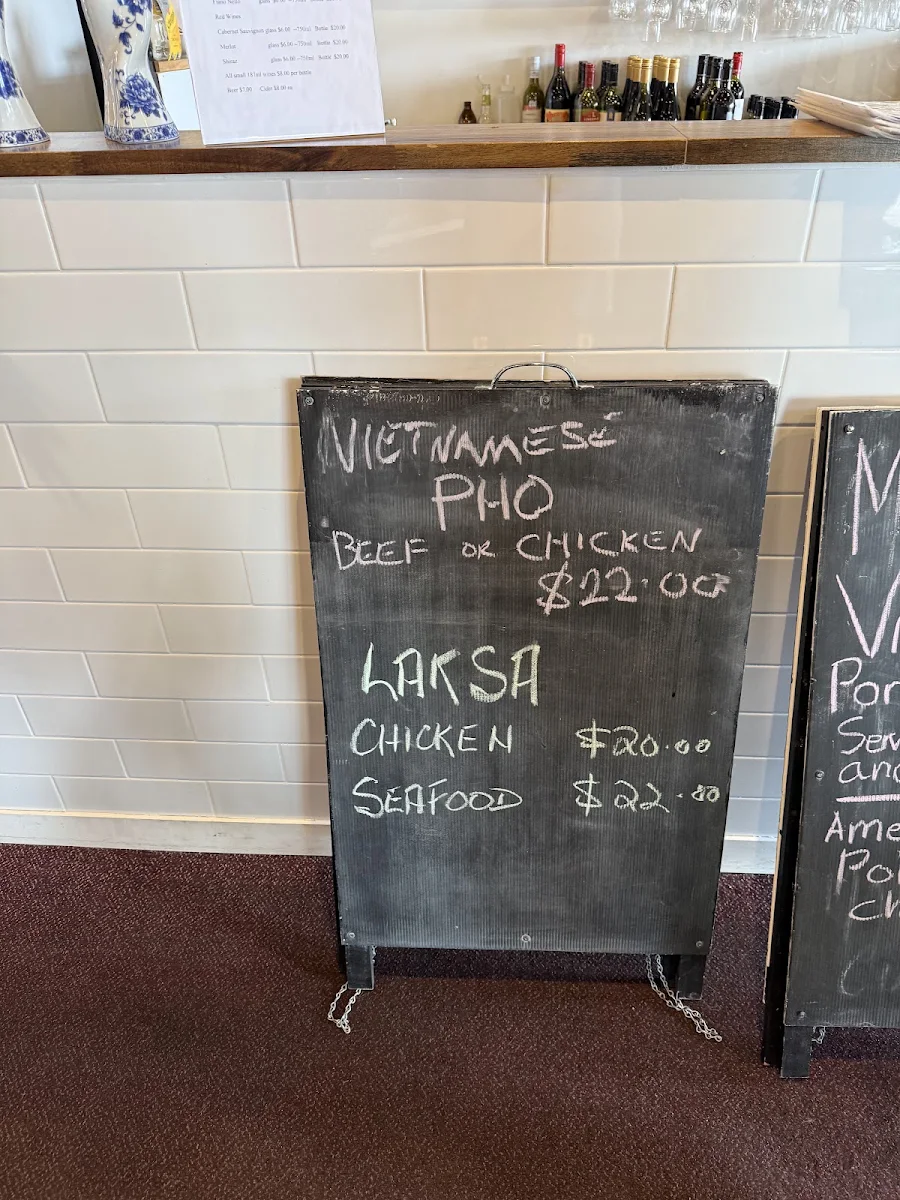 Red Wines
Cabernet Sauvignon glass $6.00 ~750ml Bottle $20.00
Merlot glass $6.00 ~750ml Bottle $20.00
Shiraz glass $6.00 ~750ml Bottle $20.00
All small 187ml wines $8.00 per bottle
Beer $7.00 Cider $8.00
VIETNAMESE
PHO
BEEF OR CHICKEN
$22.00
LAKSA
CHICKEN $20.00
SEAFOOD $22.80
M
V
Por
Ser
and
Ame
Po
Ch